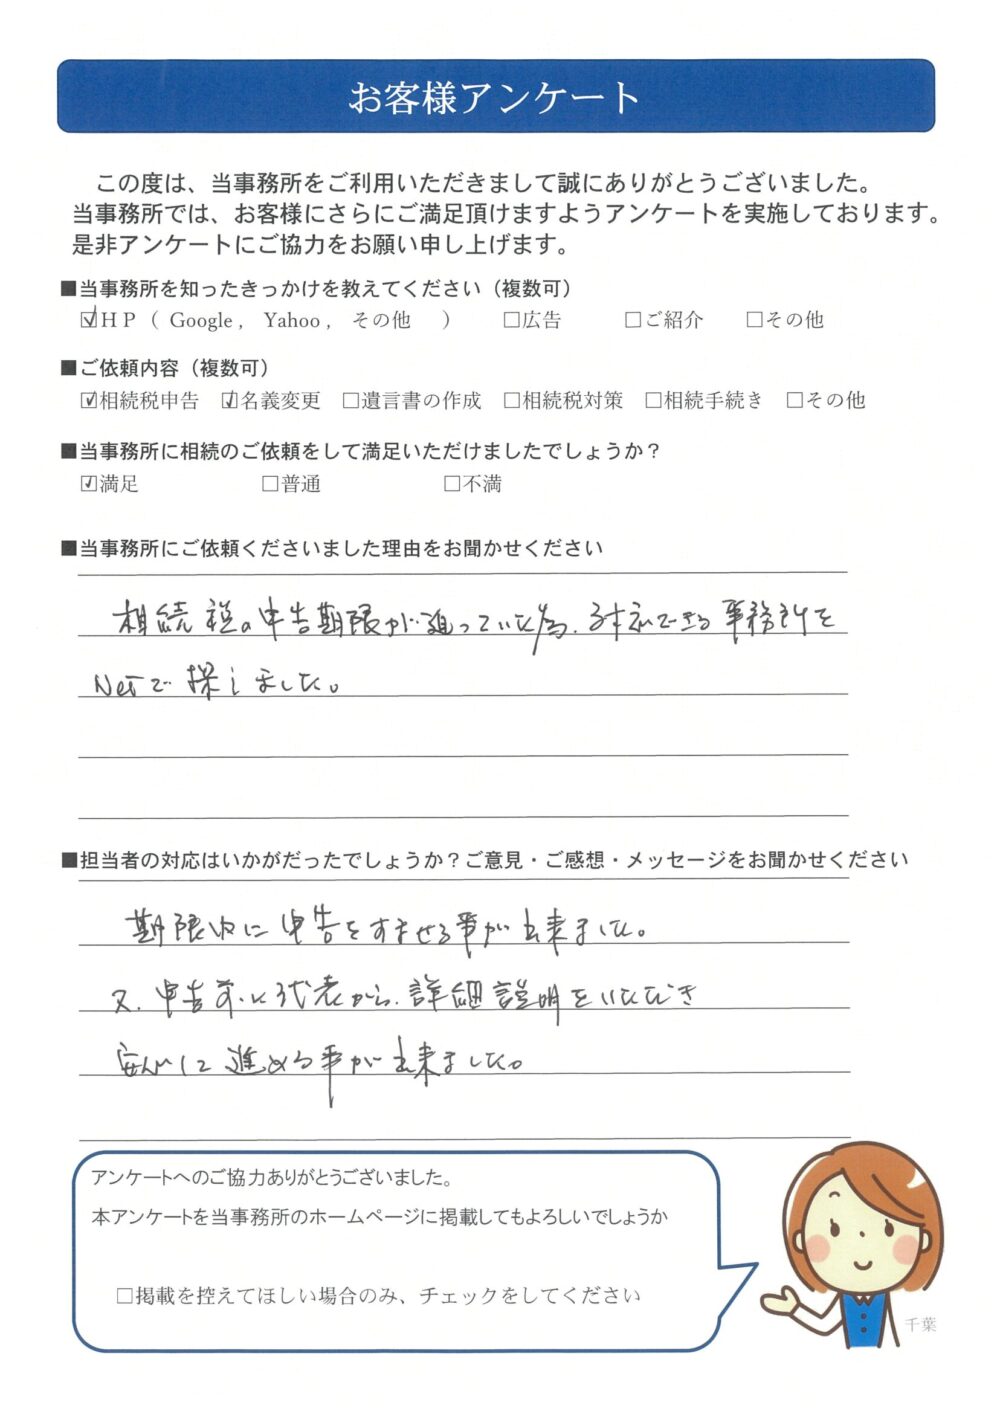 お客様アンケート
この度は、当事務所をご利用いただきまして誠にありがとうございました。
当事務所では、お客様にさらにご満足頂けますようアンケートを実施しております。
是非アンケートにご協力をお願い申し上げます。
■当事務所を知ったきっかけを教えてください（複数可）
☑ＨＰ（ Google , Yahoo , その他 ） □広告 □ご紹介 □その他
■ご依頼内容（複数可）
☑相続税申告 ☑名義変更 □遺言書の作成 □相続税対策 □相続手続き □その他
■当事務所に相続のご依頼をして満足いただけましたでしょうか？
☑満足 □普通 □不満
■当事務所にご依頼くださいました理由をお聞かせください
相続税の申告期限が迫っていた為、対応できる事務所を
Netで探しました。
■担当者の対応はいかがだったでしょうか？ご意見・ご感想・メッセージをお聞かせください
期限内に申告をすませる事が出来ました。
又、申告前に代表から、詳細説明をいただき
安心して進める事が出来ました。
アンケートへのご協力ありがとうございました。
本アンケートを当事務所のホームページに掲載してもよろしいでしょうか
□掲載を控えてほしい場合のみ、チェックをしてください
千葉